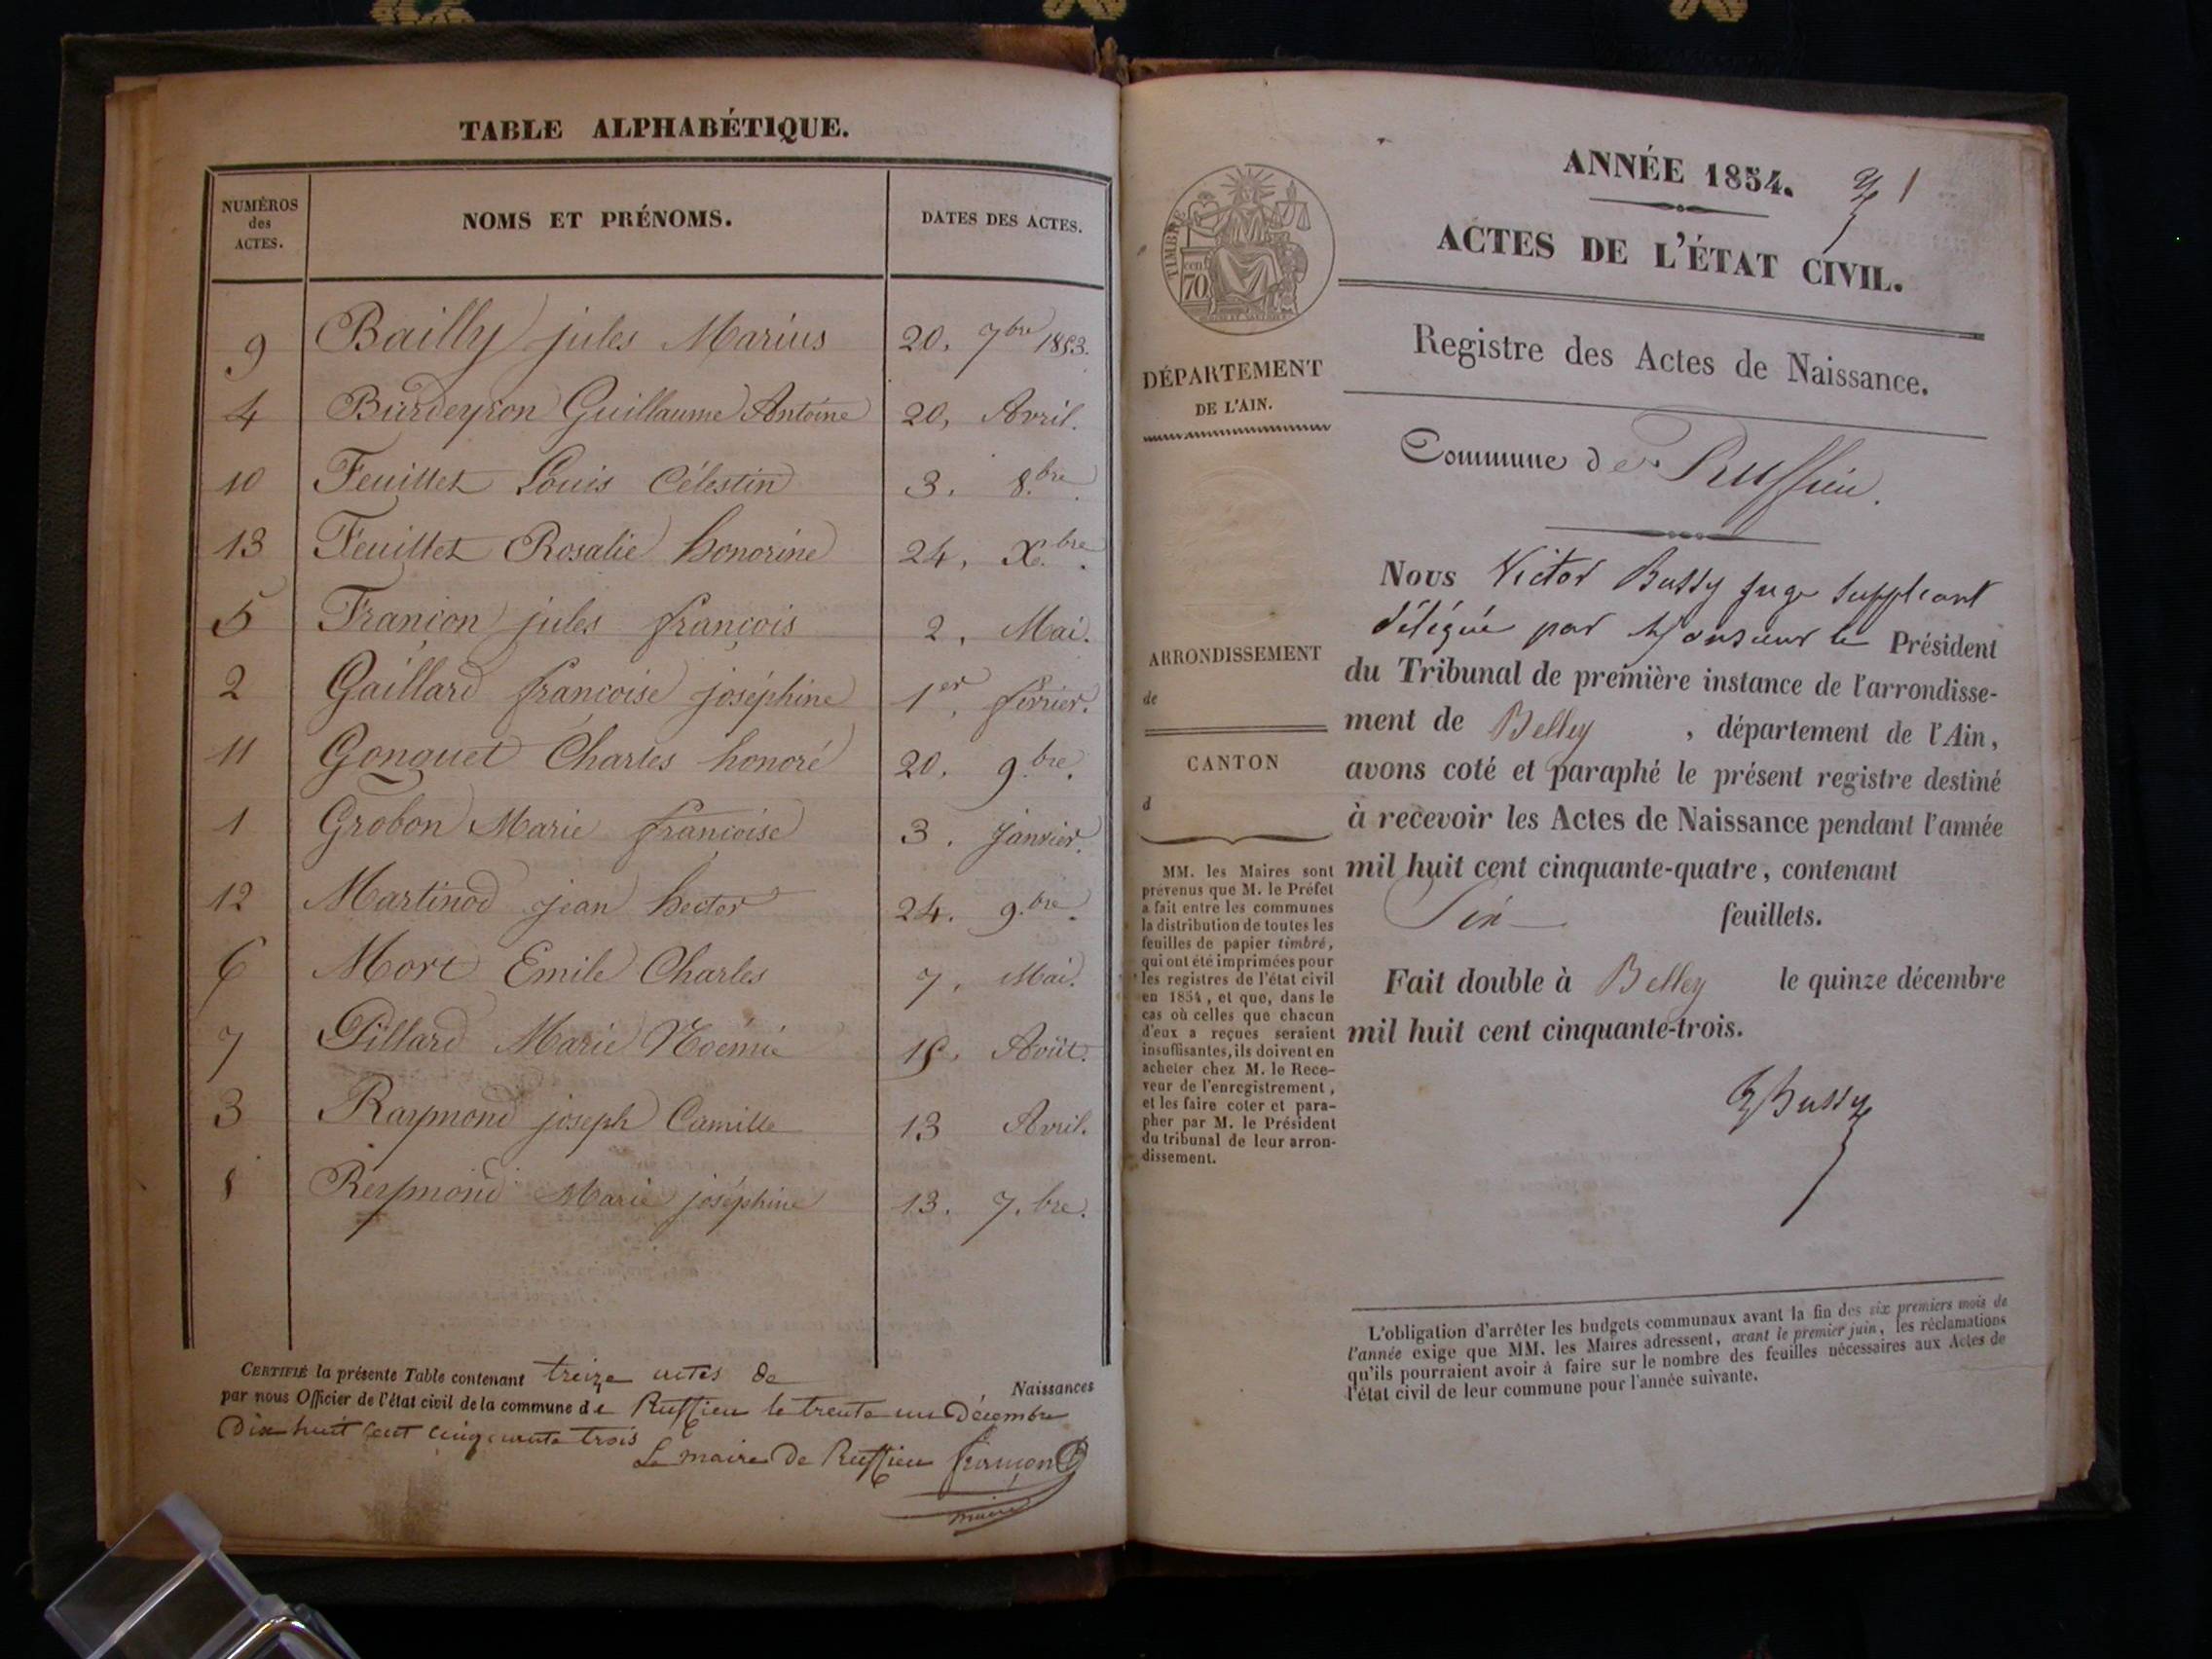 TABLE ALPHABÉTIQUE.
NUMÉROS
des
ACTES.
NOMS ET PRÉNOMS.
DATES DES ACTES.
9 Bailly jules Marius 20, 7bre 1853.
4 Burdeyron Guillaume Antoine 20, Avril.
10 Feuillet Louis Célestin 3. 8.bre.
13 Feuillet Rosalie honorine 24, Xbre.
5 Françon jules françois 2, Mai.
2 Gaillard françoise joséphine 1er, février.
11 Gonguet Charles honoré 20. 9.bre.
1 Grobon Marie françoise 3. Janvier.
12 Martinod jean hector 24. 9.bre.
6 Mort Emile Charles 7, Mai.
7 Pillard Marie Noémie Août.
3 Raymond joseph Camille 13 Avril.
8 Reymond Marie joséphine 13. 7.bre.
CERTIFIÉ la présente Table contenant treize actes de Naissances
par nous Officier de l'état civil de la commune de Ruffieu le trente un Décembre
Dix huit cent cinquante trois
Le maire de Ruffieu françon
maire
ANNÉE 1854. 1
ACTES DE L'ÉTAT CIVIL.
TIMBRE
cen.
70
DÉPARTEMENT
DE L'AIN.
ARRONDISSEMENT
de
CANTON
d
MM. les Maires sont
prévenus que M. le Préfet
a fait entre les communes
la distribution de toutes les
feuilles de papier timbré,
qui ont été imprimées pour
les registres de l'état civil
en 1854, et que, dans le
cas où celles que chacun
d'eux a reçues seraient
insuffisantes, ils doivent en
acheter chez M. le Rece-
veur de l'enregistrement,
et les faire coter et para-
pher par M. le Président
du tribunal de leur arron-
dissement.
Registre des Actes de Naissance.
Commune de Ruffieu.
Nous Victor Bussy juge suppléant
délégué par Monsieur le Président
du Tribunal de première instance de l'arrondisse-
ment de Belley, département de l'Ain,
avons coté et paraphé le présent registre destiné
à recevoir les Actes de Naissance pendant l'année
mil huit cent cinquante-quatre, contenant
Six feuillets.
Fait double à Belley le quinze décembre
mil huit cent cinquante-trois.
Bussy
L'obligation d'arrêter les budgets communaux avant la fin des six premiers mois de
l'année exige que MM. les Maires adressent, avant le premier juin, les réclamations
qu'ils pourraient avoir à faire sur le nombre des feuilles nécessaires aux Actes de
l'état civil de leur commune pour l'année suivante.